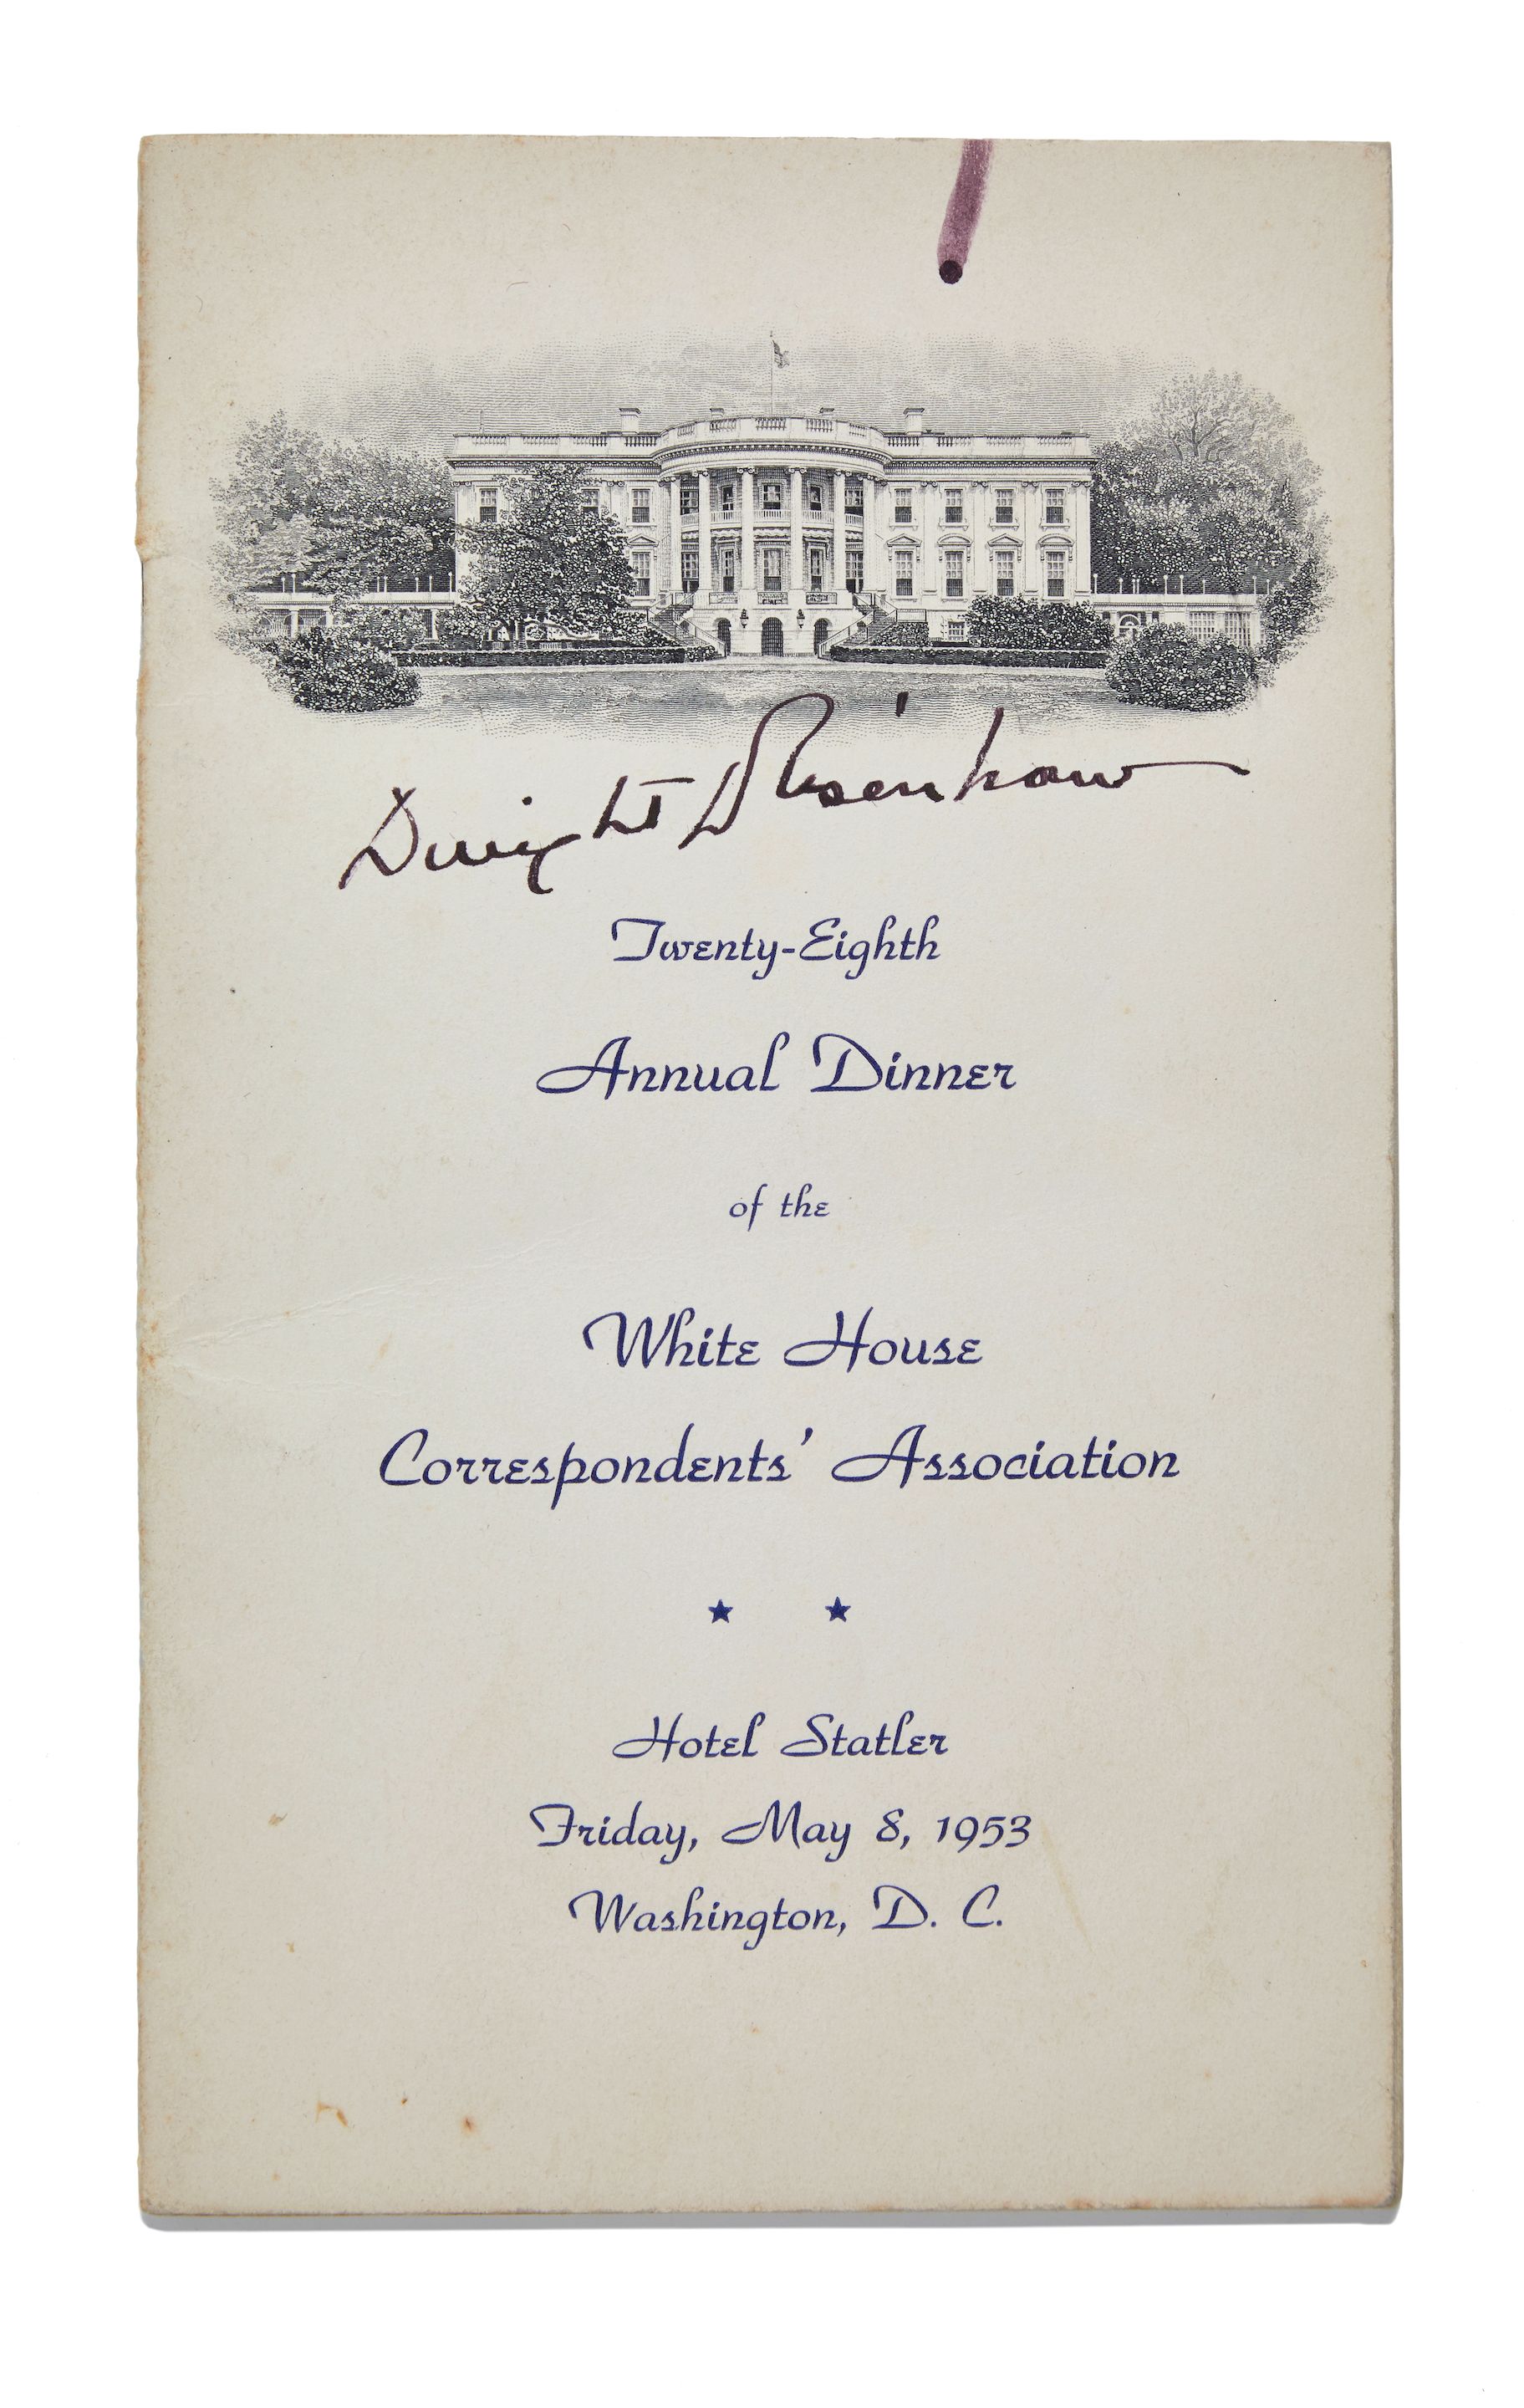 Dwight D Eisenhower
Twenty-Eighth
Annual Dinner
of the
White House
Correspondents' Association
★ ★
Hotel Statler
Friday, May 8, 1953
Washington, D. C.